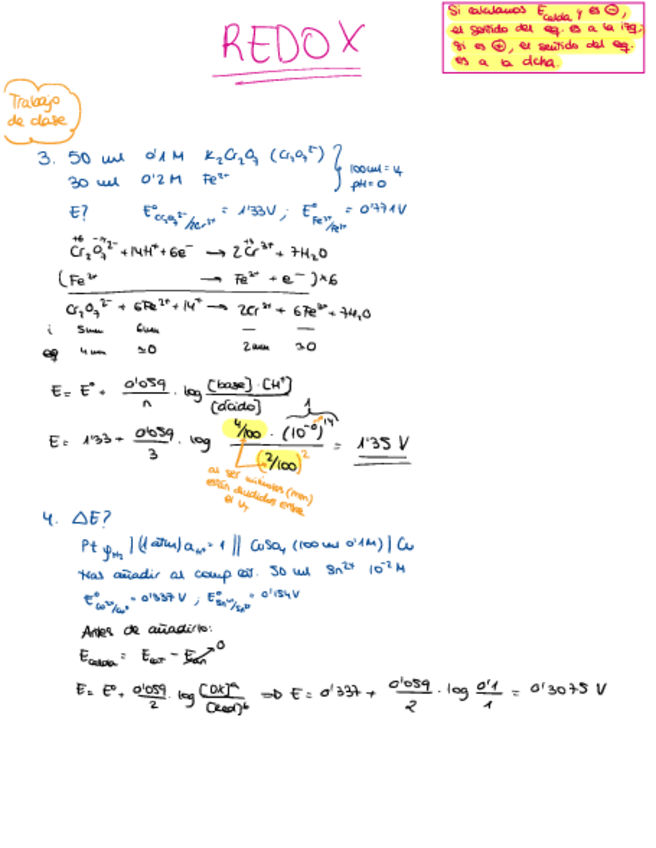 REDOX
Si calculamos Ecelda y es ⊖,
el sentido del eq. es a la izq;
si es ⊕, el sentido del eq.
es a la dcha.
Trabajo
de clase
3. 50 ml 0'1 M K₂Cr₂O₇ (Cr₂O₇²⁻)
30 ml 0'2 M Fe²⁺
100 ml = V
pH = 0
E? E°Cr₂O₇²⁻/Cr³⁺ = 1'33 V ; E°Fe³⁺/Fe²⁺ = 0'771 V
+6 -2 +3
Cr₂O₇²⁻ + 14H⁺ + 6e⁻ → 2Cr³⁺ + 7H₂O
(Fe²⁺ → Fe³⁺ + e⁻) × 6
Cr₂O₇²⁻ + 6Fe²⁺ + 14⁺ → 2Cr³⁺ + 6Fe³⁺ + 7H₂O
i 5mm 6mm — —
eq 4mm ≈0 2mm ≈0
E = E° + 0'059/n · log [base]·[H⁺]/[ácido]
1
E = 1'33 + 0'059/3 · log 4/100 · (10⁻⁰)¹⁴/(2/100)² = 1'35 V
al ser milimoles (mm)
están divididos entre
el VT
4. ΔE?
Pt PH₂ | (1 atm) aH⁺ = 1 || CuSO₄ (100 ml 0'1M) | Cu
Tras añadir al comp cat. 50 ml Sn²⁺ 10⁻² M
E°Cu²⁺/Cu° = 0'337 V ; E°Sn⁴⁺/Sn²⁺ = 0'154 V
Antes de añadirlo:
Ecelda = Ecat − Ean 0
E = E° + 0'059/2 · log [OX]ᵃ/[Red]ᵇ ⇒ E = 0'337 + 0'059/2 · log 0'1/1 = 0'3075 V